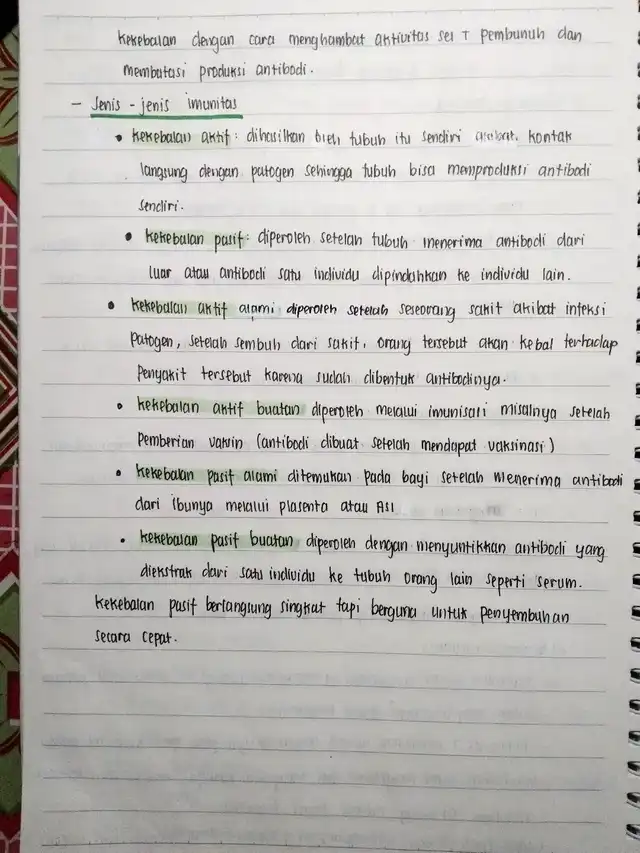 kekebalan dengan cara menghambat aktivitas sel T pembunuh dan
membatasi produksi antibodi.
- Jenis - jenis imunitas
• kekebalan aktif : dihasilkan oleh tubuh itu sendiri akibat kontak
langsung dengan patogen sehingga tubuh bisa memproduksi antibodi
sendiri.
• kekebalan pasif : diperoleh setelah tubuh menerima antibodi dari
luar atau antibodi satu individu dipindahkan ke individu lain.
• kekebalan aktif alami diperoleh setelah seseorang sakit akibat infeksi
patogen, setelah sembuh dari sakit, orang tersebut akan kebal terhadap
penyakit tersebut karena sudah dibentuk antibodinya.
• kekebalan aktif buatan diperoleh melalui imunisasi misalnya setelah
pemberian vaksin (antibodi dibuat setelah mendapat vaksinasi)
• kekebalan pasif alami ditemukan pada bayi setelah menerima antibodi
dari ibunya melalui plasenta atau ASI
• kekebalan pasif buatan diperoleh dengan menyuntikkan antibodi yang
diekstrak dari satu individu ke tubuh orang lain seperti serum.
kekebalan pasif berlangsung singkat tapi berguna untuk penyembuhan
secara cepat.